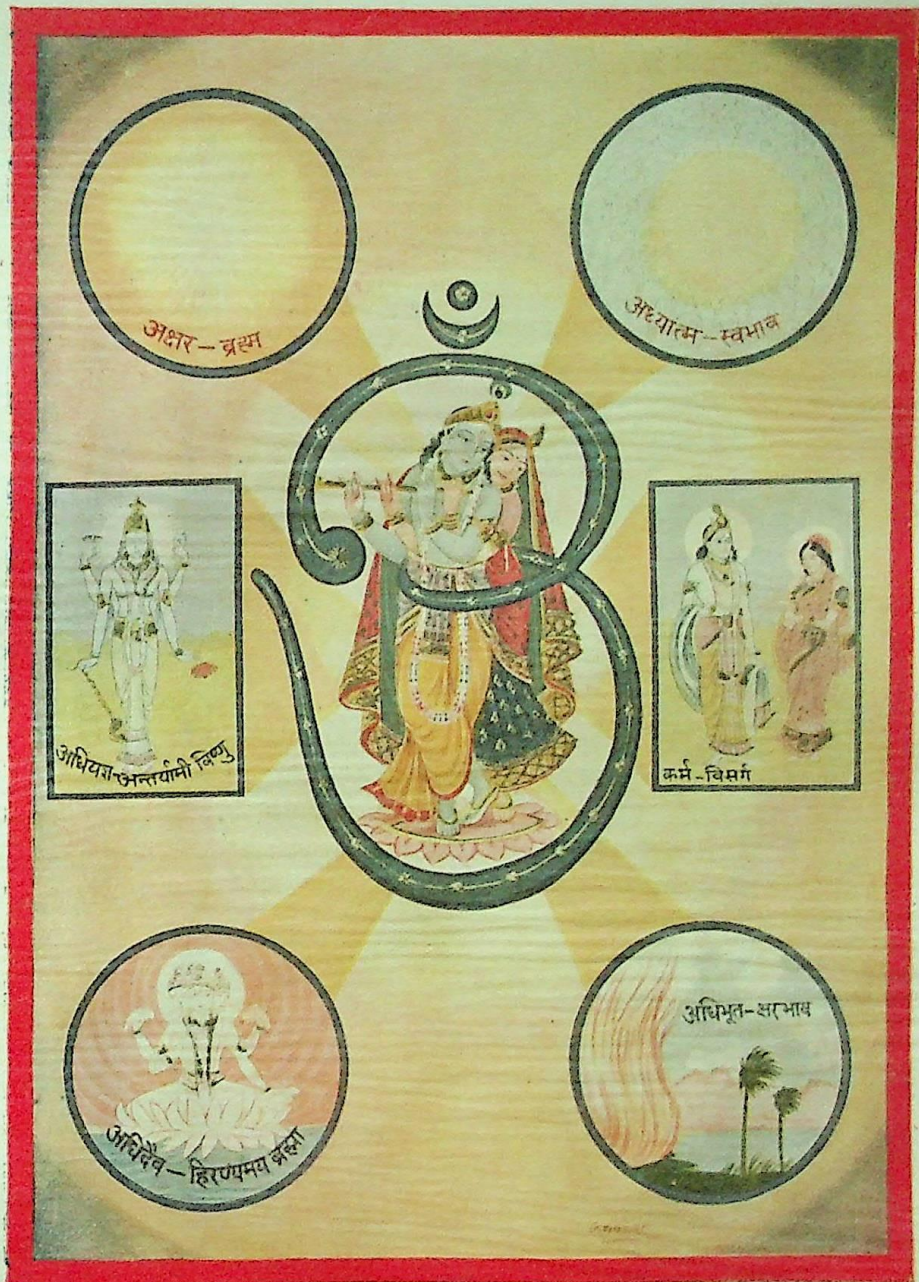 अक्षर - ब्रह्म
अध्यात्म - स्वभाव
अधियज्ञ-अन्तर्यामी विष्णु
कर्म - विसर्ग
अधिदैव - हिरण्यमय ब्रह्मा
अधिभूत-क्षरभाव